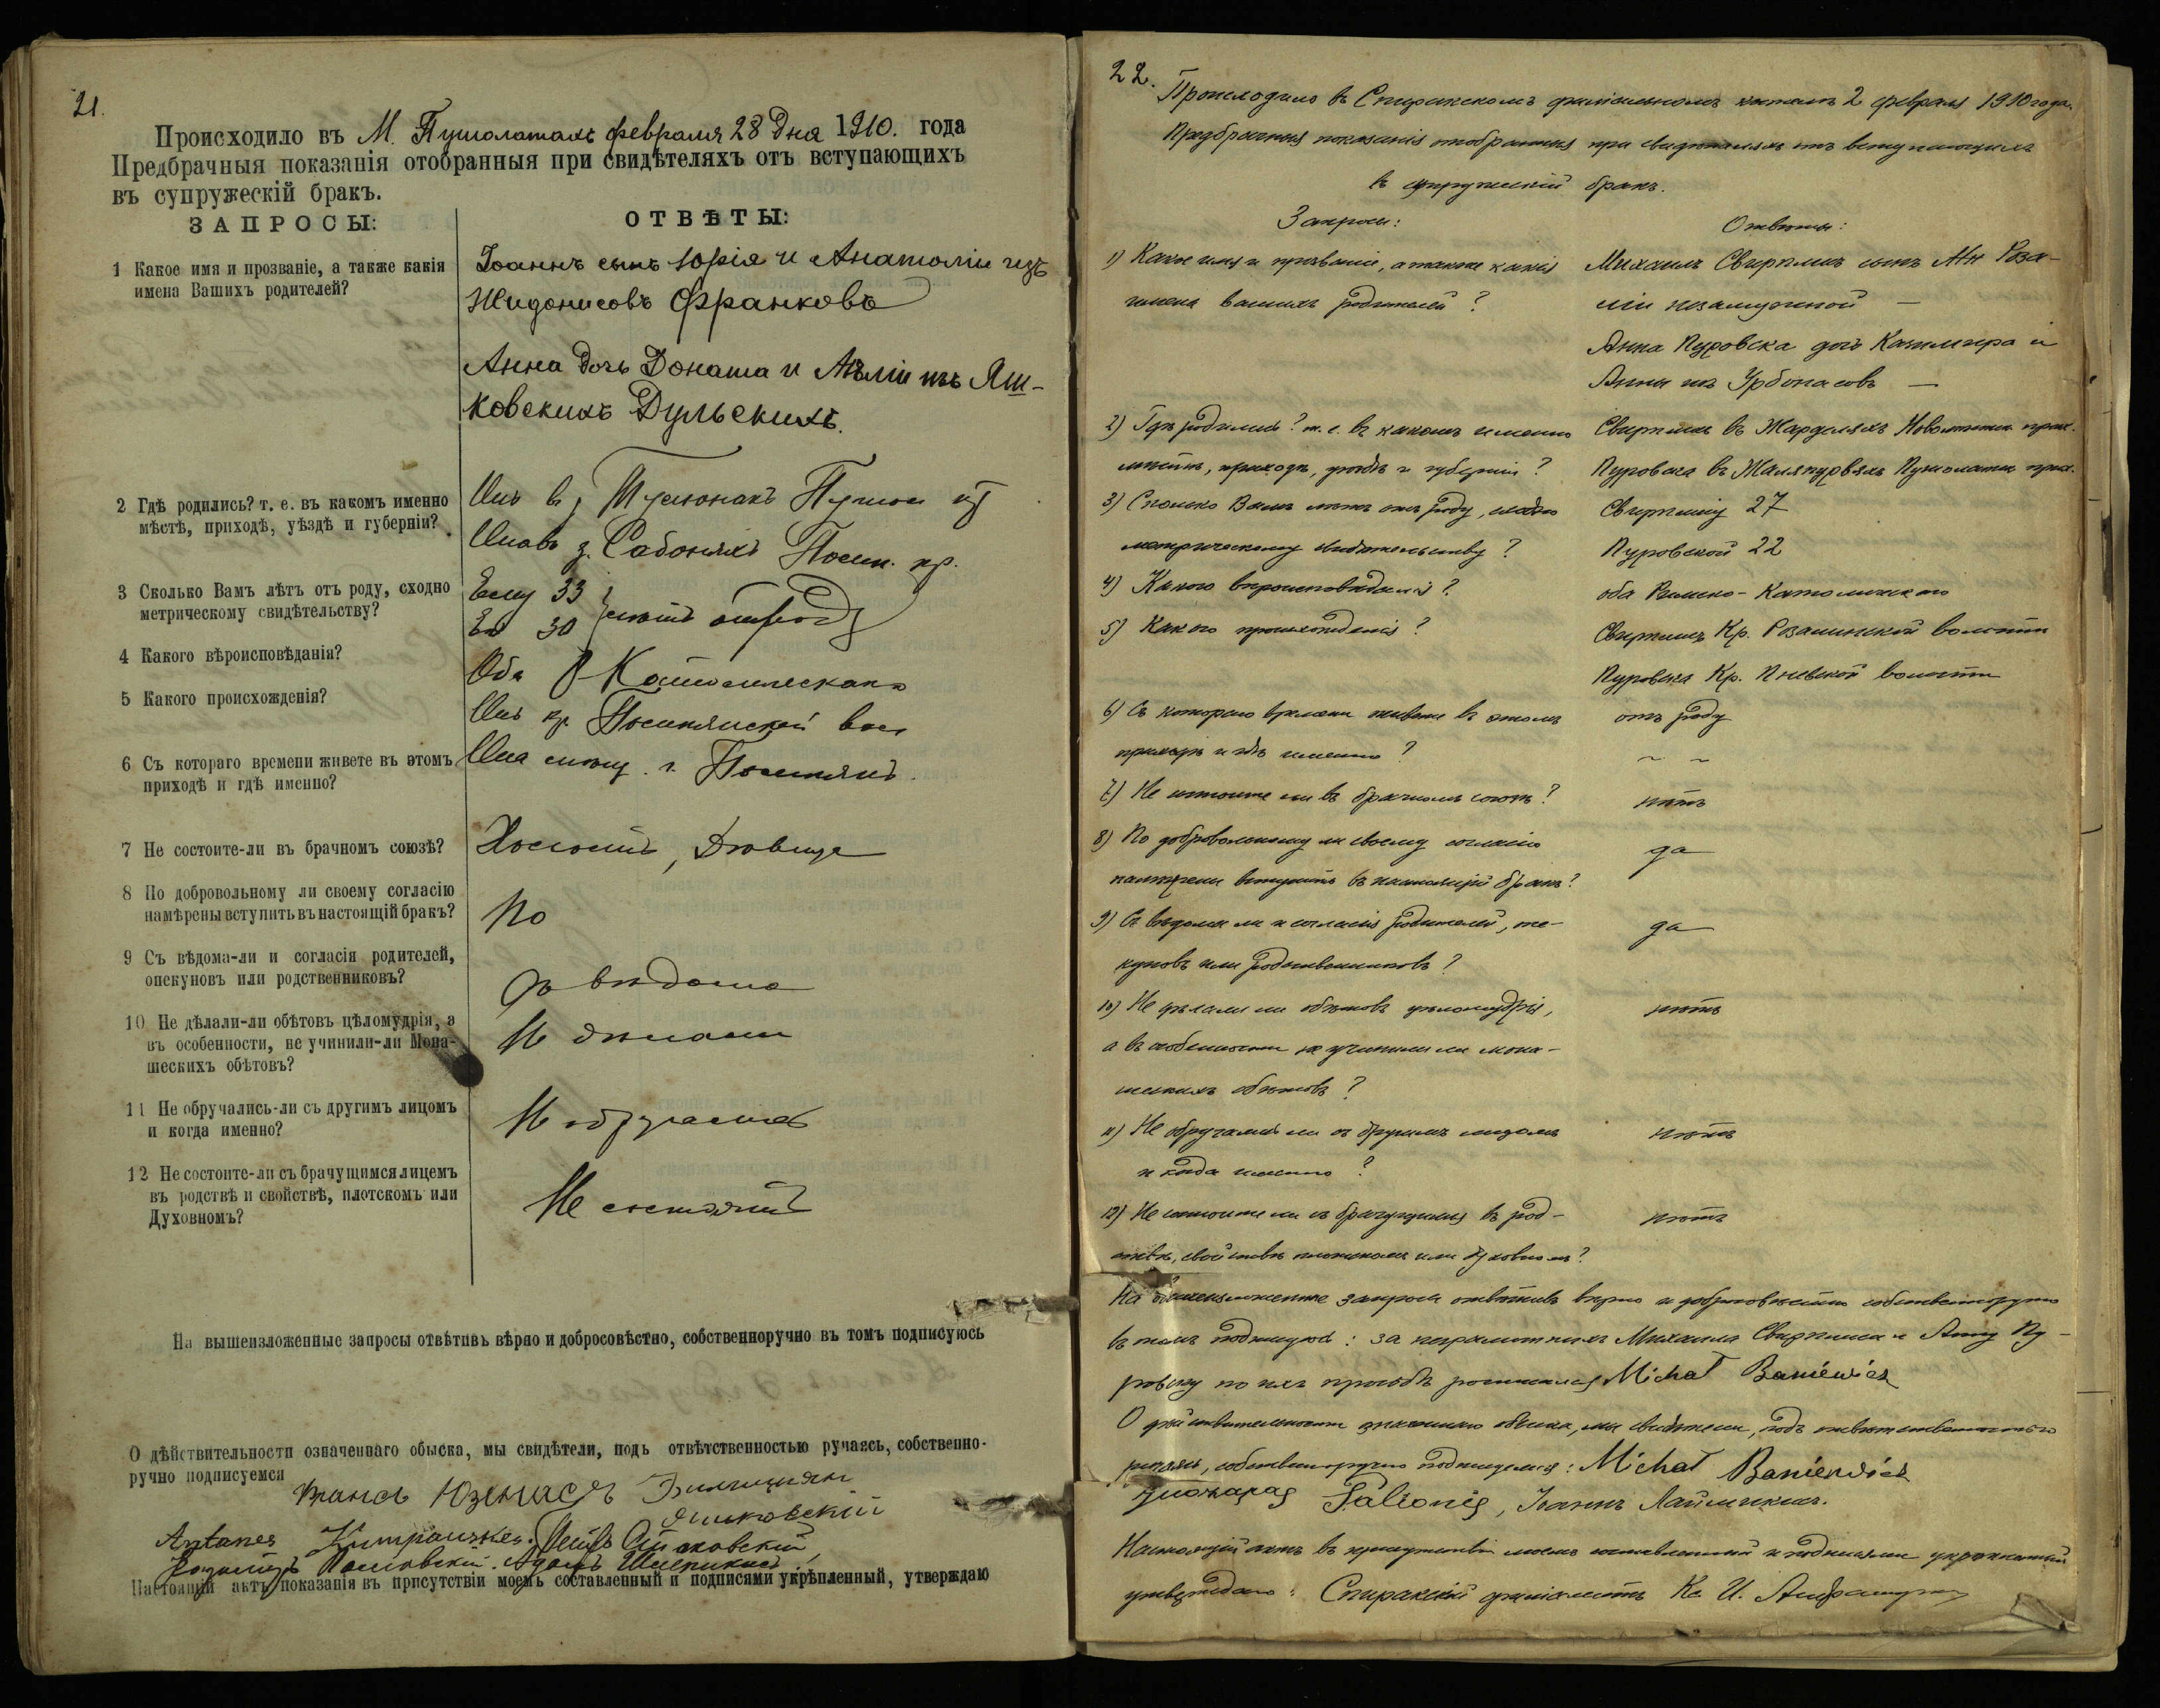 21.
Происходило въ М. Пушолатахъ февраля 28 дня 1910. года
Предбрачныя показанія отобранныя при свидѣтеляхъ отъ вступающихъ
въ супружескій бракъ.
ЗАПРОСЫ:
ОТВѢТЫ:
1 Какое имя и прозваніе, а также какія
имена Вашихъ родителей?
Іоаннъ сынъ Юрія и Анатоліи изъ
Жидонисовъ Франковъ
Анна дочь Доната и изъ Яш-
ковскихъ Дульскихъ.
2 Гдѣ родились? т. е. въ какомъ именно
мѣстѣ, приходѣ, уѣздѣ и губерніи?
Онъ в
Она въ з. Сабоняхъ пр.
3 Сколько Вамъ лѣтъ отъ роду, сходно
метрическому свидѣтельству?
Ему 33
Ей 30 лѣтъ отъ роду
4 Какого вѣроисповѣданія?
Оба Р Католическаго
5 Какого происхожденія?
Онъ кр. вол
6 Съ котораго времени живете въ этомъ
приходѣ и гдѣ именно?
Она г.
7 Не состоите-ли въ брачномъ союзѣ?
Холостъ, Дѣвица
8 По добровольному ли своему согласію
намѣрены вступить въ настоящій бракъ?
По
9 Съ вѣдома-ли и согласія родителей,
опекуновъ или родственниковъ?
Съ вѣдома
10 Не дѣлали-ли обѣтовъ цѣломудрія, а
въ особенности, не учинили-ли Мона-
шескихъ обѣтовъ?
Не дѣлали
11 Не обручались-ли съ другимъ лицомъ
и когда именно?
Не обручались
12 Не состоите-ли съ брачущимся лицемъ
въ родствѣ и свойствѣ, плотскомъ или
Духовномъ?
Не состоятъ
На вышеизложенные запросы отвѣтивъ вѣрно и добросовѣстно, собственноручно въ томъ подписуюсь
О дѣйствительности означеннаго обыска, мы свидѣтели, подъ отвѣтственностью ручаясь, собственно-
ручно подписуемся
Юзенасъ
Antanes
Адамъ
Настоящій актъ показанія въ присутствіи моемъ составленный и подписями укрѣпленный, утверждаю
22.
Происходило въ Спиракскомъ филіальномъ костелѣ 2 февраля 1910 года.
Предбрачныя показанія отобранныя при свидѣтеляхъ отъ вступающихъ
въ супружескій бракъ.
Запросы:
Отвѣты:
1) Какое имя и прозваніе, а также какія
имена вашихъ родителей?
Михаилъ Свирплисъ сынъ Роза-
ліи незамужной —
Анна Пуровска дочь Казимира и
Анны изъ Урбонасовъ —
2) Гдѣ родились? т. е. въ какомъ именно
мѣстѣ, приходѣ, уѣздѣ и губерніи?
Свирплисъ въ Жарделяхъ прих.
Пуровска въ Маляпурвяхъ Пушолатск прих.
3) Сколько Вамъ лѣтъ отъ роду, сходно
метрическому свидѣтельству?
Свирплису 27
Пуровской 22
4) Какого вѣроисповѣданія?
оба Римско-Католическаго
5) Какого происхожденія?
Свирплисъ Кр. Розалинской волости
Пуровска Кр. Пневской волости
6) Съ котораго времени живете въ этомъ
приходѣ и гдѣ именно?
отъ роду
7) Не состоите ли въ брачномъ союзѣ?
нѣтъ
8) По добровольному ли своему согласію
намѣрены вступить въ настоящій бракъ?
да
9) Съ вѣдома ли и согласія родителей, опе-
куновъ или родственниковъ?
да
10) Не дѣлали ли обѣтовъ цѣломудрія,
а въ особенности не учинили ли мона-
шескихъ обѣтовъ?
нѣтъ
11) Не обручались ли съ другимъ лицомъ
и когда именно?
нѣтъ
12) Не состоите ли съ брачущимся въ род-
ствѣ, свойствѣ плотскомъ или духовномъ?
нѣтъ
На вышеизложенные запросы отвѣтивъ вѣрно и добросовѣстно собственноручно
въ томъ подписуюсь: за неграмотныхъ Михаила Свирплиса и Анну Пу-
ровску по ихъ просьбѣ росписался Michał Baniewicz
О дѣйствительности означеннаго обыска, мы свидѣтели, подъ отвѣтственностью
ручаясь, собственноручно подписуемся: Michał Baniewicz
Juozapas Palionis, Іоаннъ
Настоящій актъ въ присутствіи моемъ составленный и подписями укрѣпленный
утверждаю: Спиракскій филіалистъ Кс. И.